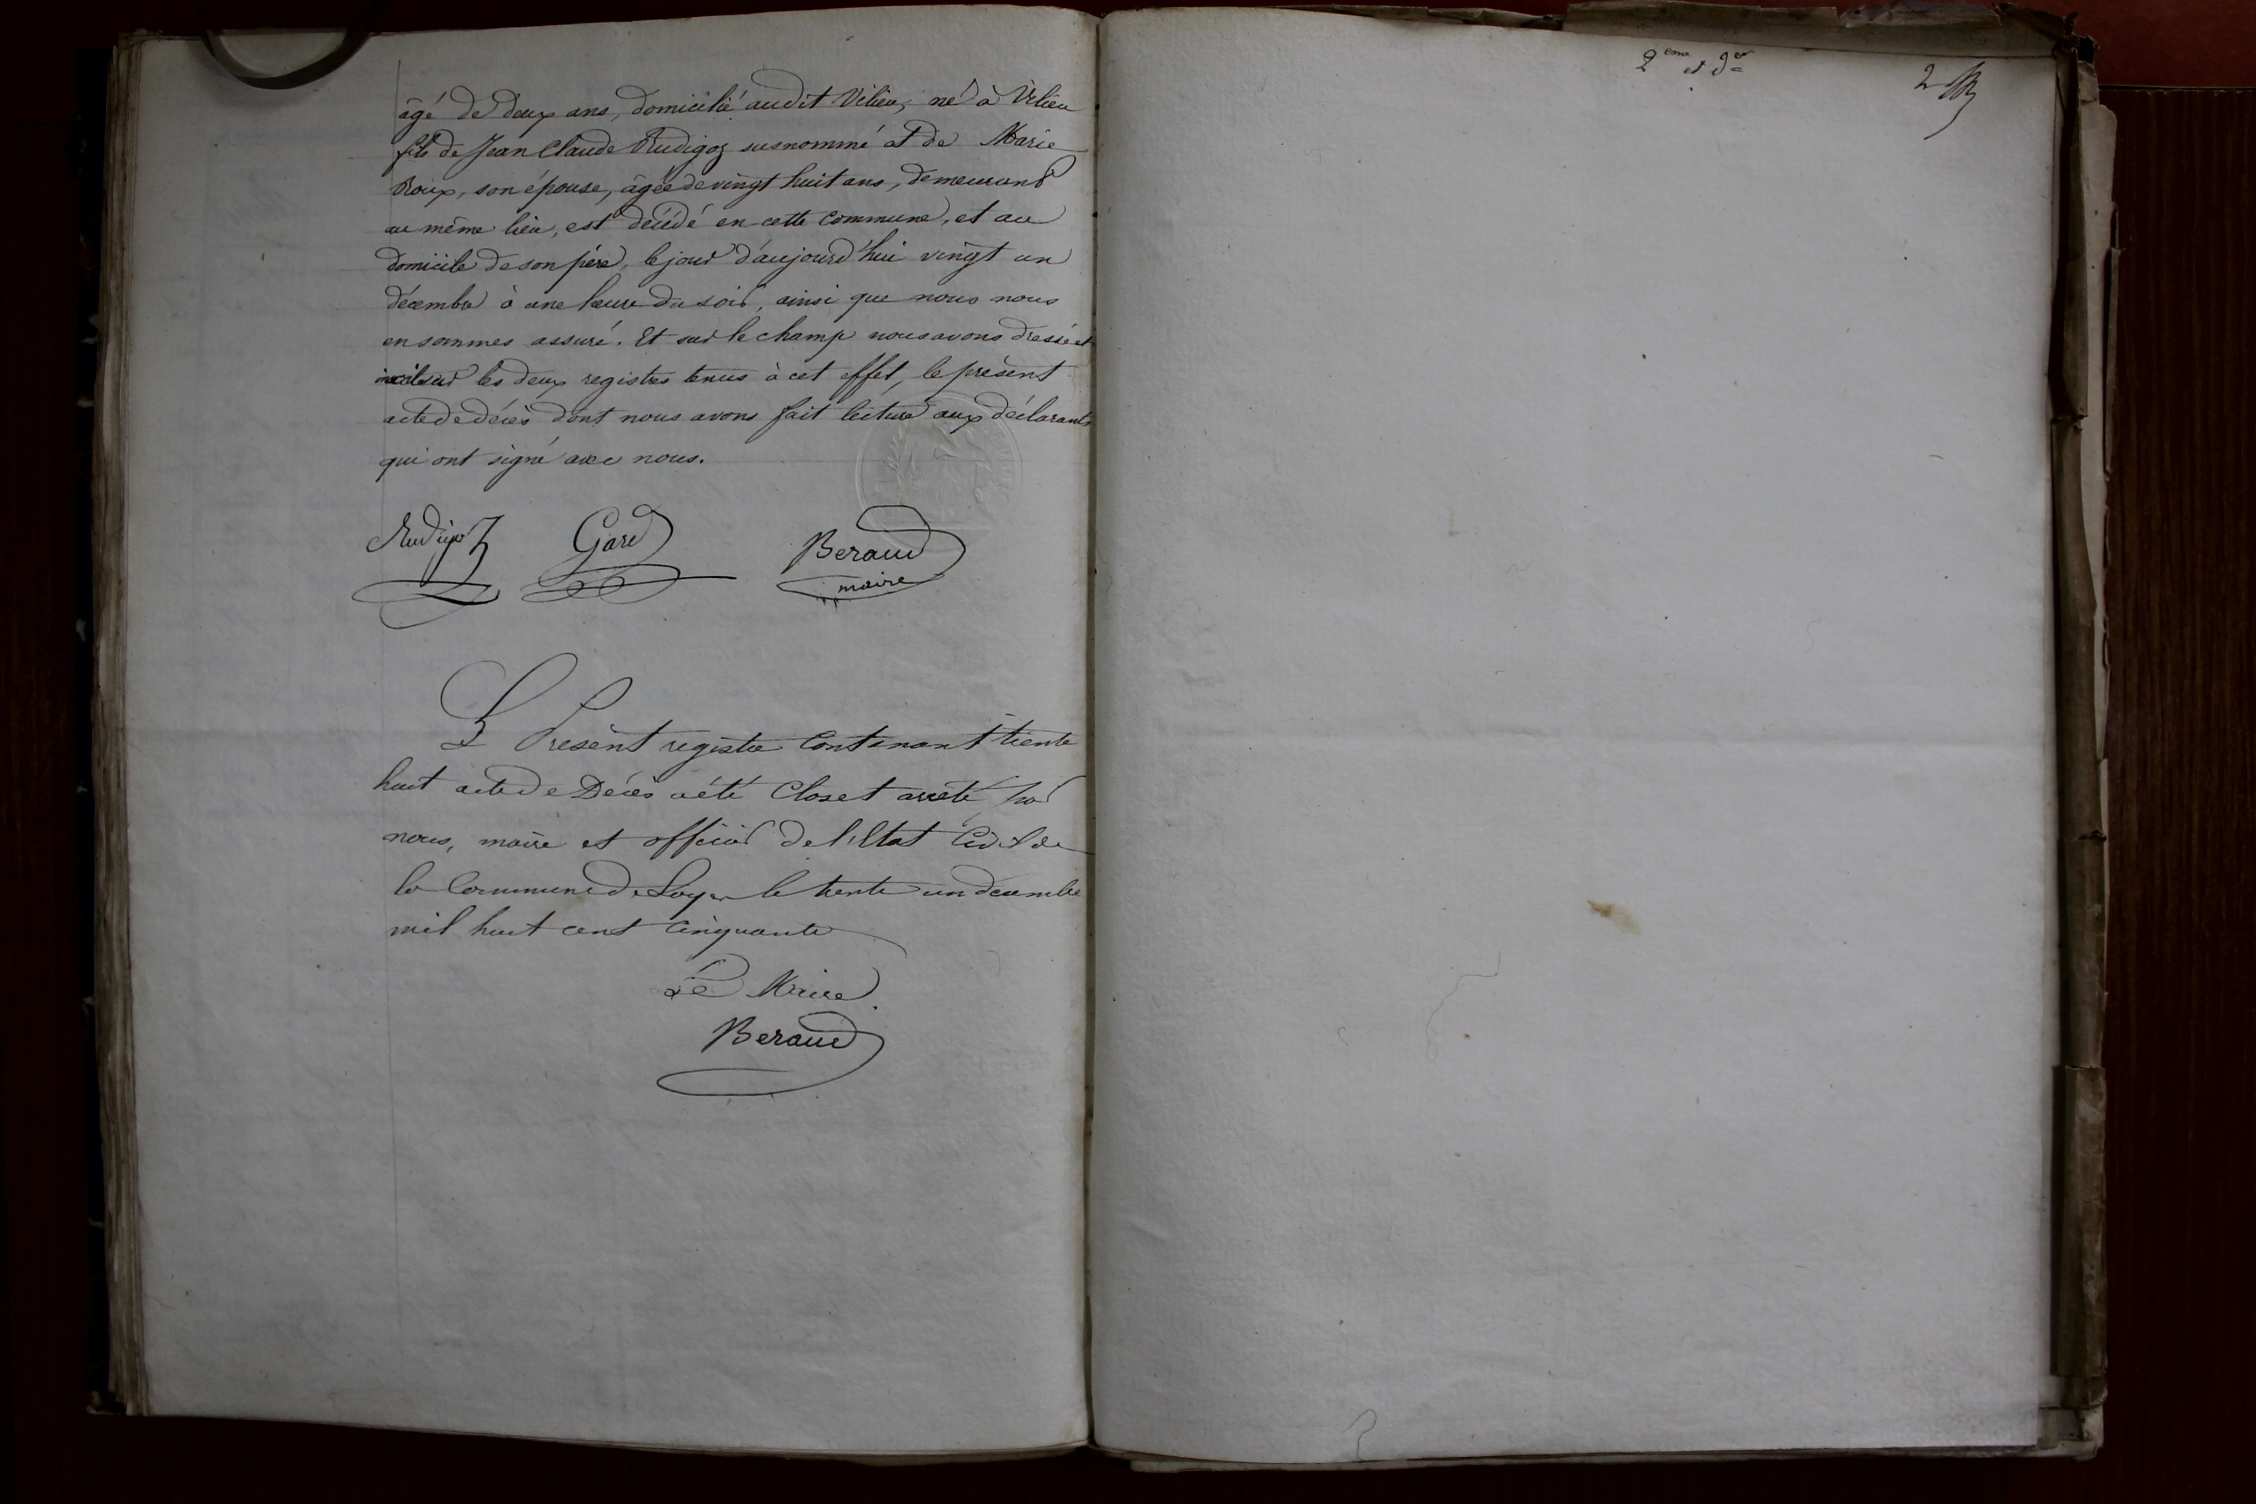 âgé de deux ans, domicilié audit Vilieu, né à Vilieu
fils de Jean Claude Rudigoz susnommé et de Marie
Roux, son épouse, âgée de vingt huit ans, demeurant
au même lieu, est décédé en cette commune, et au
domicile de son père, le jour d'aujourd'hui vingt un
décembre à une heure du soir, ainsi que nous nous
en sommes assuré. Et sur le champ nous avons dressé et
inscrit sur les deux registres tenus à cet effet, le présent
acte de décès dont nous avons fait lecture aux déclarants
qui ont signé avec nous.
Rudigoz Gard Beraud
maire
Le Présent registre Contenant trente
huit acte de Décès a été Clos et arrêté par
nous, maire et officier de l'Etat Civil de
la Commune de Loyes le trente un décembre
mil huit cent Cinquante
Le Maire
Beraud
2eme et der